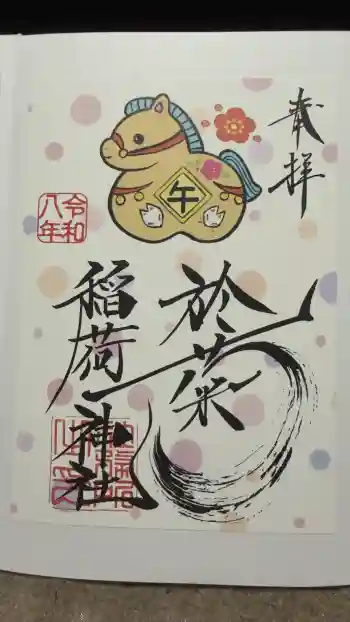 奉拝
午
令和
八年
於菊
稲荷神社